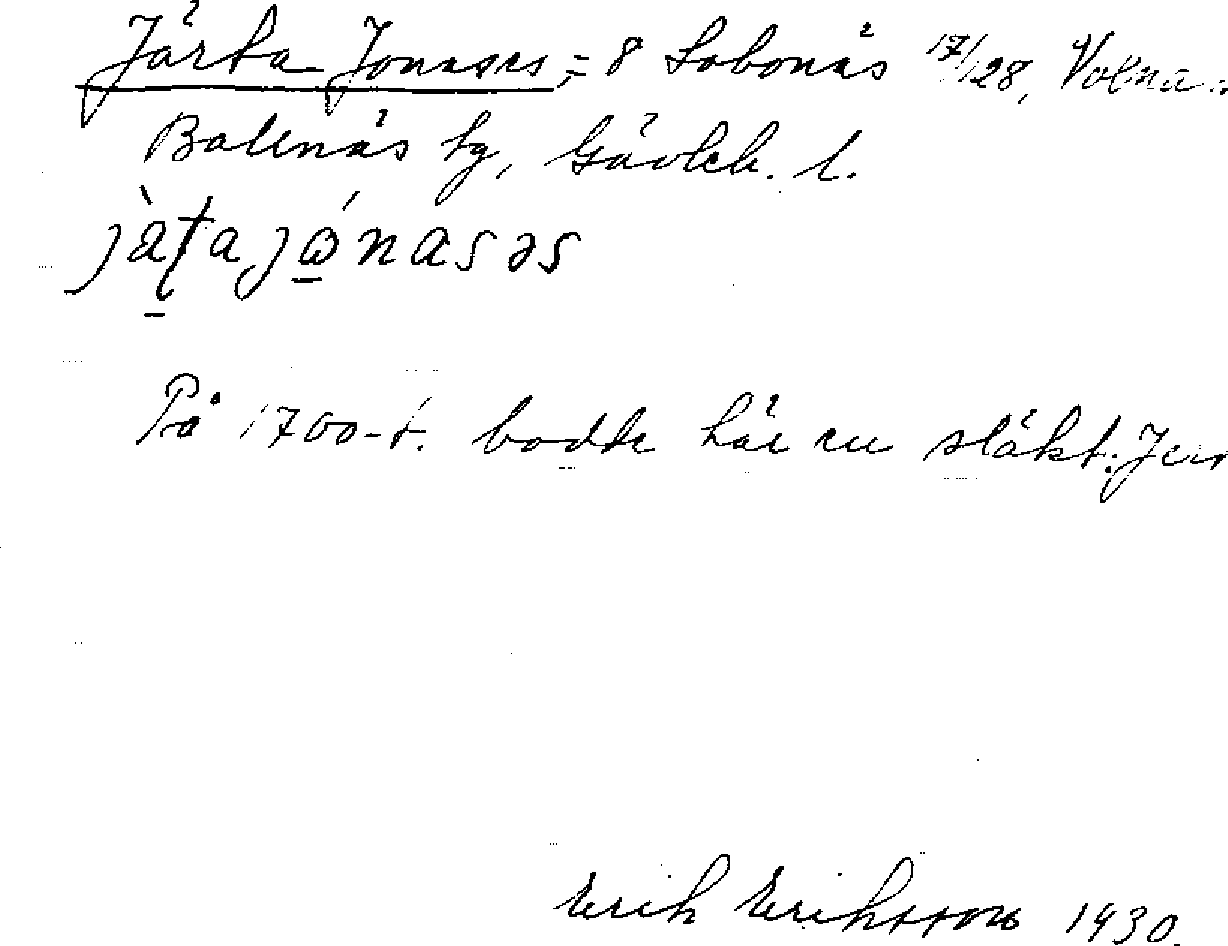 Järta Jonases, = 8 Sobonäs 17/128, Volna
Bollnäs sg, Gävleb. l.
På 1700-t. bodde här en släkt: Jer
Erik Eriksson 1930.